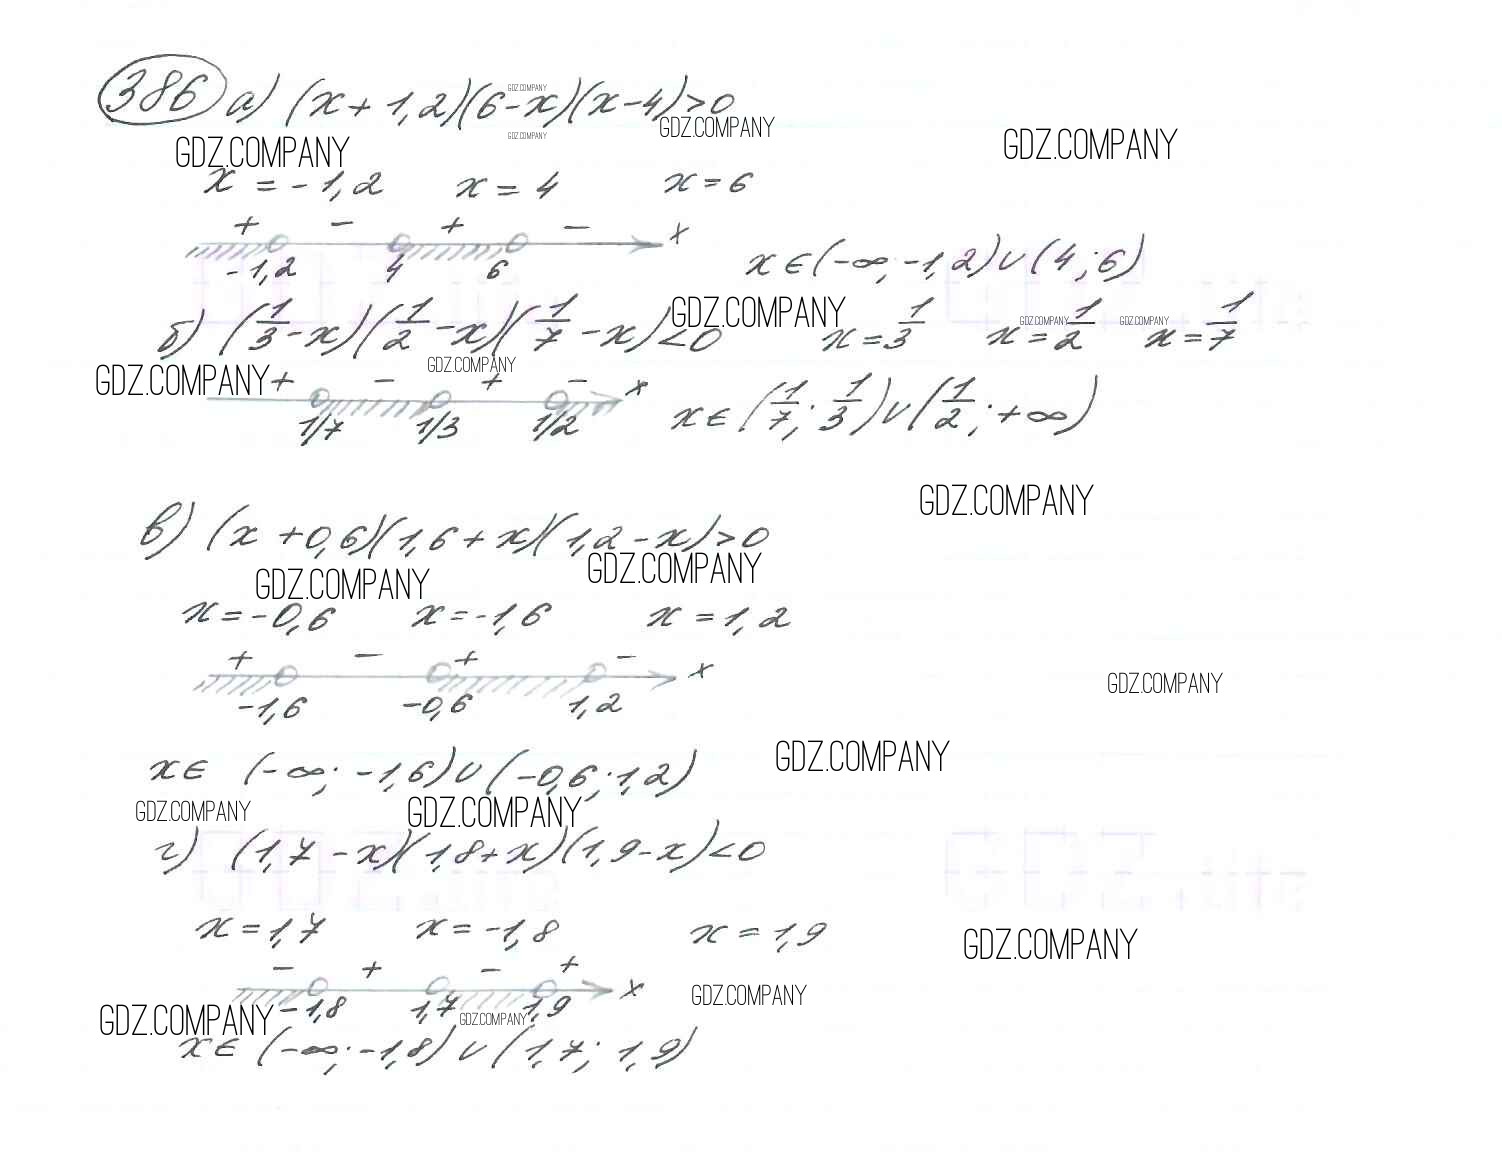 386 а) (x + 1,2)(6-x)(x-4)>0
GDZ.COMPANY
GDZ.COMPANY
GDZ.COMPANY
GDZ.COMPANY
GDZ.COMPANY
x = -1,2 x = 4 x = 6
+ - + - x
-1,2 4 6
x ∈ (-∞; -1,2) ∪ (4; 6)
GDZ.COMPANY
б) (1/3 - x)(1/2 - x)(1/7 - x) < 0 x = 1/3 x = 1/2 x = 1/7
GDZ.COMPANY
GDZ.COMPANY
GDZ.COMPANY
GDZ.COMPANY
+ - + - x
1/7 1/3 1/2
x ∈ (1/7; 1/3) ∪ (1/2; +∞)
GDZ.COMPANY
в) (x + 0,6)(1,6 + x)(1,2 - x) > 0
GDZ.COMPANY
GDZ.COMPANY
x = -0,6 x = -1,6 x = 1,2
+ - + - x
-1,6 -0,6 1,2
GDZ.COMPANY
x ∈ (-∞; -1,6) ∪ (-0,6; 1,2)
GDZ.COMPANY
GDZ.COMPANY
GDZ.COMPANY
г) (1,7 - x)(1,8 + x)(1,9 - x) < 0
x = 1,7 x = -1,8 x = 1,9
GDZ.COMPANY
- + - + x
-1,8 1,7 1,9
GDZ.COMPANY
GDZ.COMPANY
GDZ.COMPANY
x ∈ (-∞; -1,8) ∪ (1,7; 1,9)